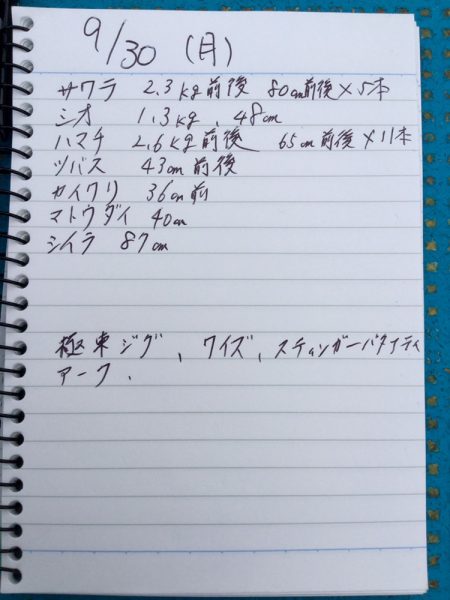 9/30 (月)
サワラ 2.3kg前後 80cm前後×5本
シオ 1.3kg、48cm
ハマチ 2.6kg前後 65cm前後×11本
ツバス 43cm前後
カイワリ 36cm前
マトウダイ 40cm
シイラ 87cm
極東ジグ、ワイズ、スティンガーバタフライ
アーク、